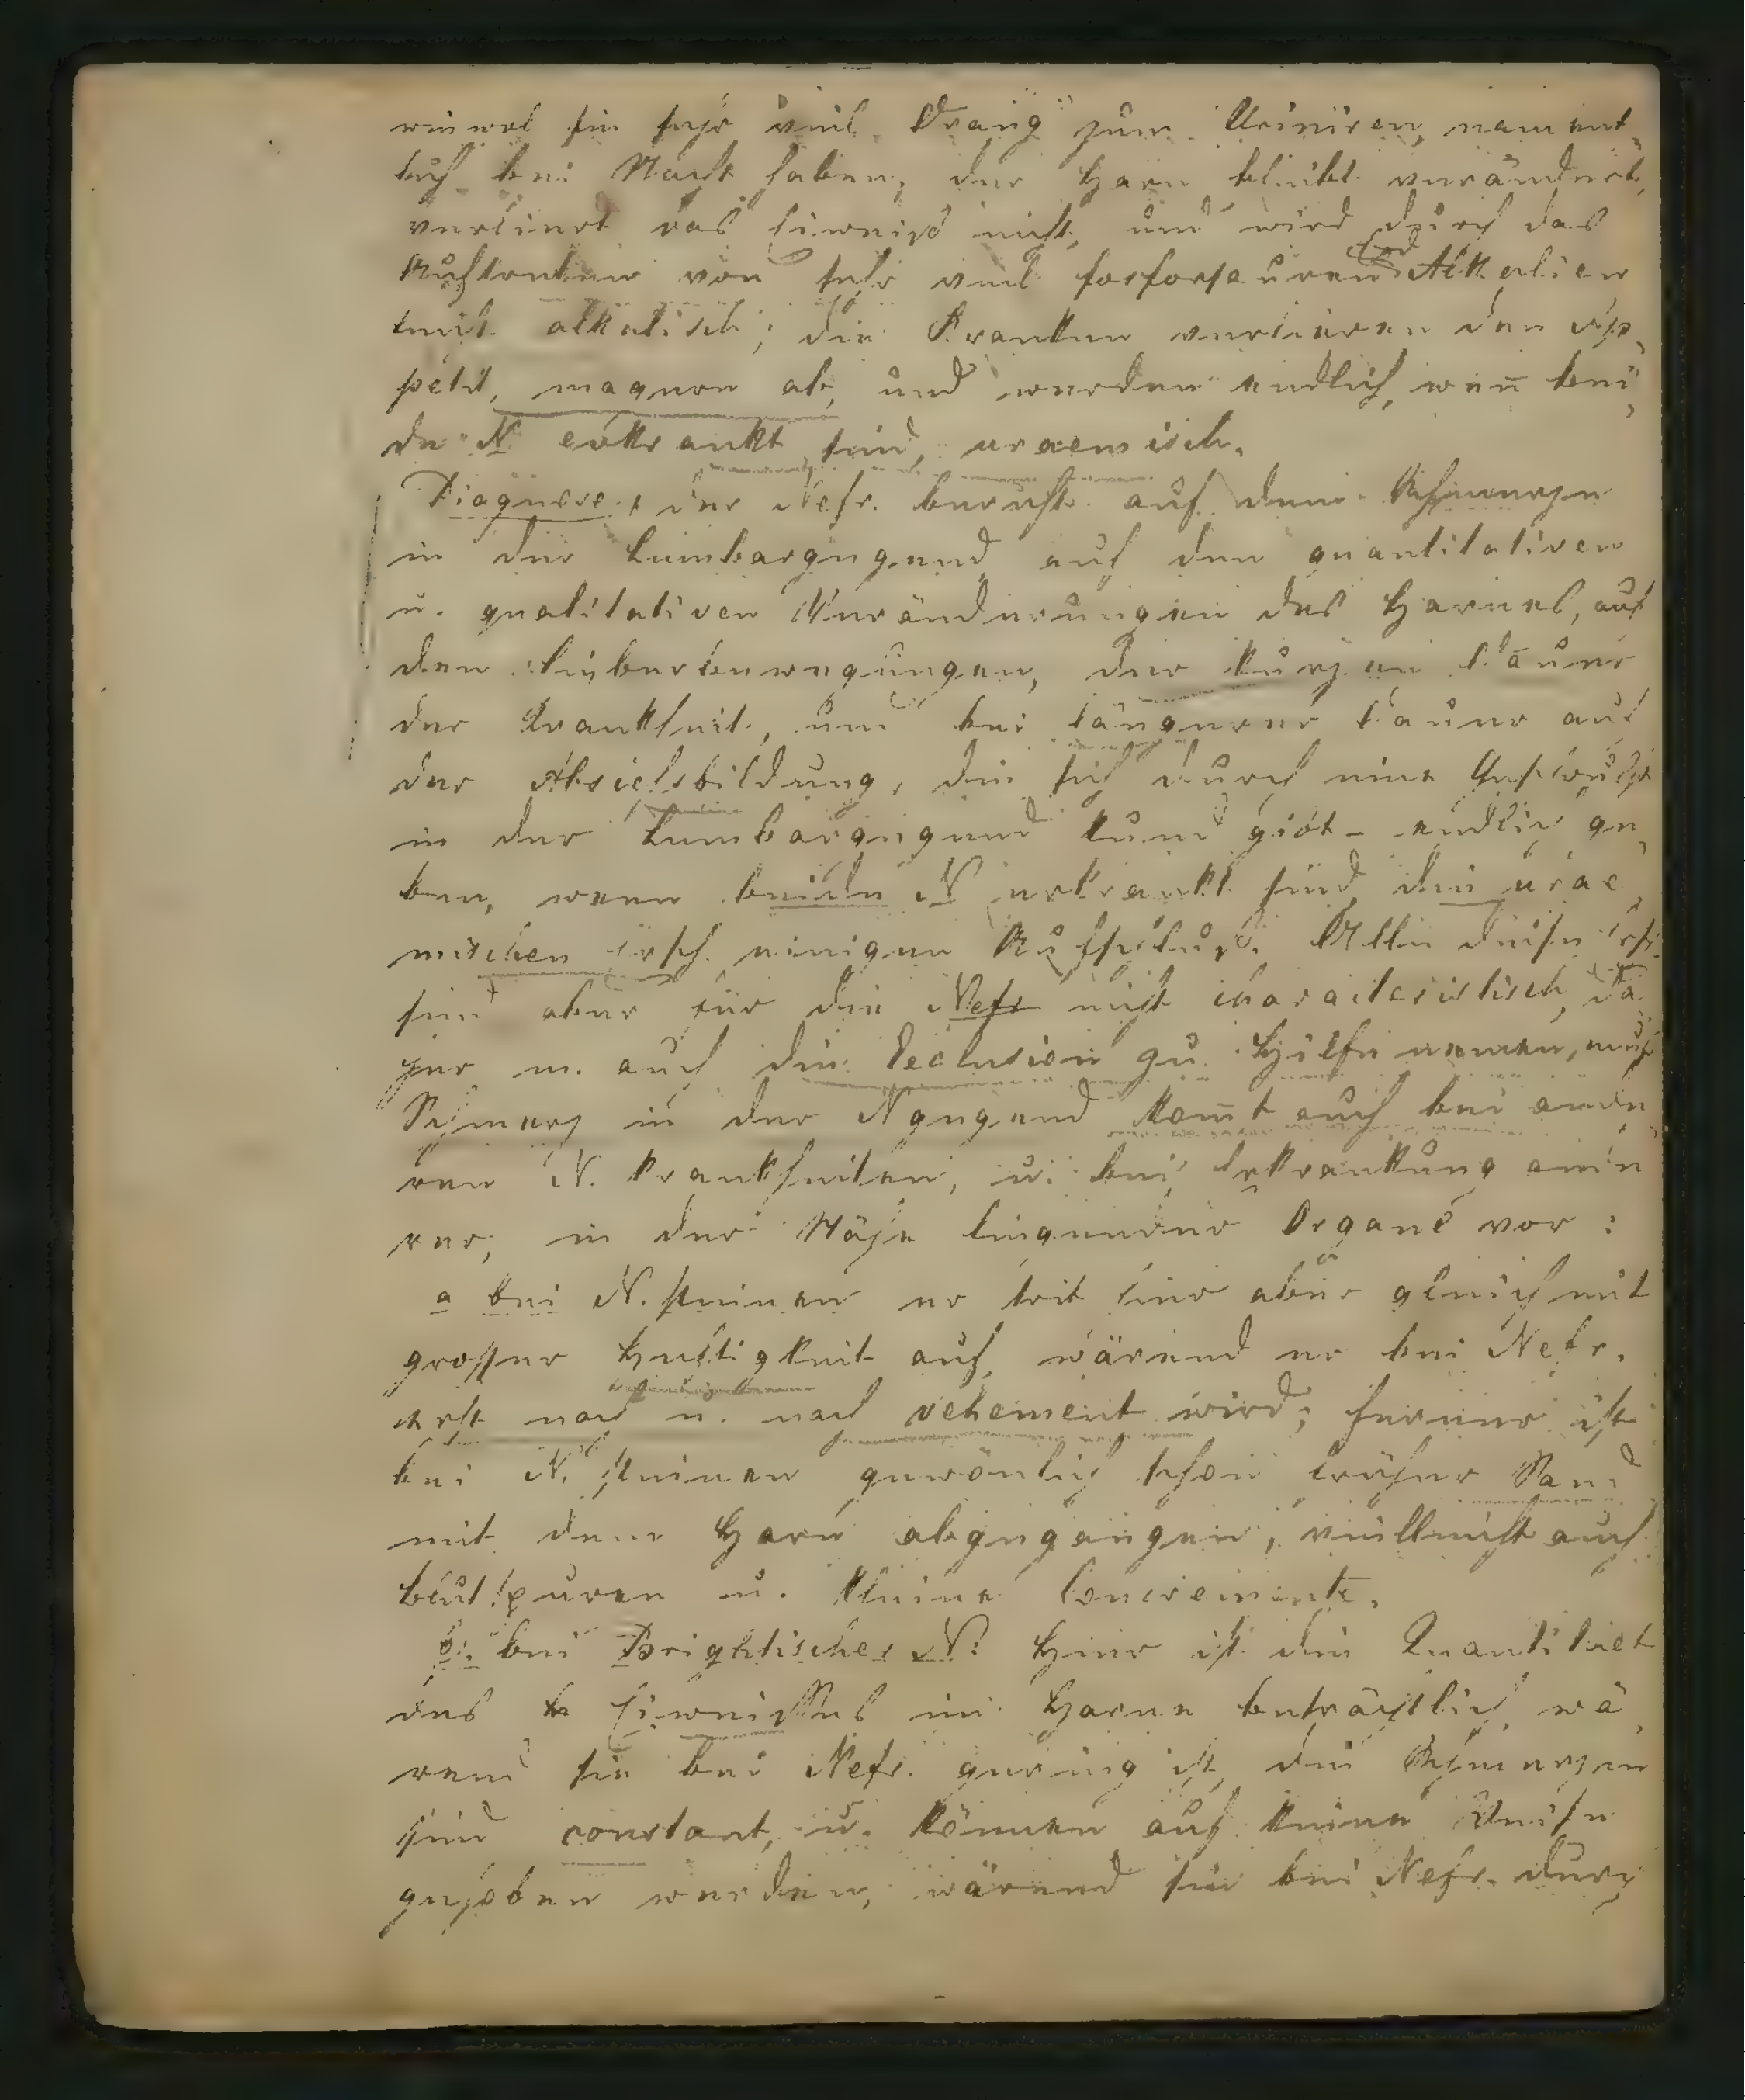 wiewol sie sehr viel Drang zum Uriniren, nament-
lich bei Nacht haben, der Harn bleibt verändert,
verliert das Eiweiss nicht, und wird durch das
Auftreten von sehr viel fosforsauren Alkalien
alkalisch; die Kranken verlieren den Ap-
petit, magern ab, und werden endlich, wen̄ bei-
de N erkrankt sind, uraemisch.
Diagnose: der Nefr. beruht auf dem Schmerzen
in der Lumbargegend auf den quantitativen
u. qualitativen Veränderungen des Harnes, auf
den Fieberbewegungen, der kurzen Dauer
der Krankheit, und bei längerer Dauer auf
der Absceßbildung, die sich durch eine Geschwulst
in der Lumbargegend kund gibt – endlich ge-
ben, wenn beide N erkrankt sind, die urae-
mischen Ersch. einigen Aufschluß. Alle diese Ersch.
sind aber für die Nefr nicht characteristisch, da
her m. auch die Exclusion zu Hilfe nemen, muß
Schmerz in der Ngegend kom̄t auch bei ande
ren N. Krankheiten, u. bei Erkrankung ande
rer, in der Nähe liegender Organe vor:
a bei N. steinen er trit hier aber gleich mit
grosser Heftigkeit auf, wärend er bei Nefr.
erst nach u. nach vehement wird; ferner ist
bei N. steinen gewönlich schon früher Sand
mit dem Harn abgegangen, vielleicht auch
blutspuren u. kleine Concremente.
b. bei Brightischer N: Hier ist die Quantitaet
des Eiweisses im Harne beträchtlich, wä
rend sie bei Nefr. gering ist, die Schmerzen
sind constant, u. können auf keine Weise
gehoben werden, wärend sie bei Nefr. durch